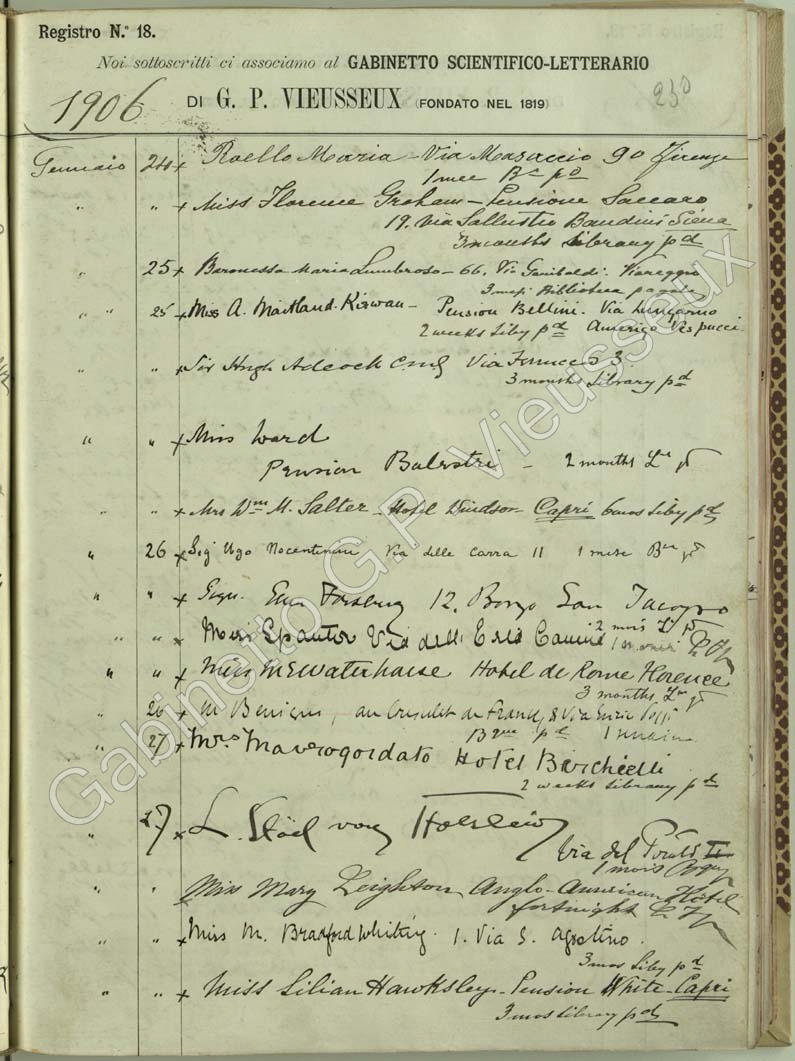 Registro N.º 18.
Noi sottoscritti ci associamo al GABINETTO SCIENTIFICO-LETTERARIO
1906 DI G. P. VIEUSSEUX (FONDATO NEL 1819) 230
Gennaio 24 x Roello Maria - Via Masaccio 90 Firenze
1 mee
" " x Miss Florence Graham - Pensione Saccaro
19. Via Sallustio Bandini Siena
3 months Library pd
" 25 x Baronessa Maria Lumbroso - 66. Via Garibaldi. Viareggio
3 mesi Biblioteca pagata
" " 25 x Miss A. Maitland-Kirwan - Pension Bellini. Via Lungarno
2 weeks Liby pd Amerigo Vespucci
" " x Sir Hugh Adcock CMG Via Ferruccio 3.
3 months Library pd
" " x Miss Ward
Pension Balestri - 2 months
" " x Mrs Wm M. Salter - Hotel Windsor - Capri 6mos Liby pd
" 26 x Sig Ugo Nocentini Via delle Carra 11 1 mese
" " x 12. Borgo San Jacopo
2 mois
" " x
" " x Miss Waterhouse Hotel de Rome Florence
3 months
" 26 x M
" 27 x Mrs Mavrogordato Hotel Berchielli
2 weeks Library pd
" 27 x L. Stäel von Holstein
Via del
1 mois
" " Miss Mary Leighton Anglo-American Hotel
fortnight
" " x Miss M. Bradford Whiting. 1. Via S. Agostino.
3 mos Liby pd
" " x Miss Lilian Hawksley - Pension White - Capri
3 mos Library pd
Gabinetto G.P. Vieusseux